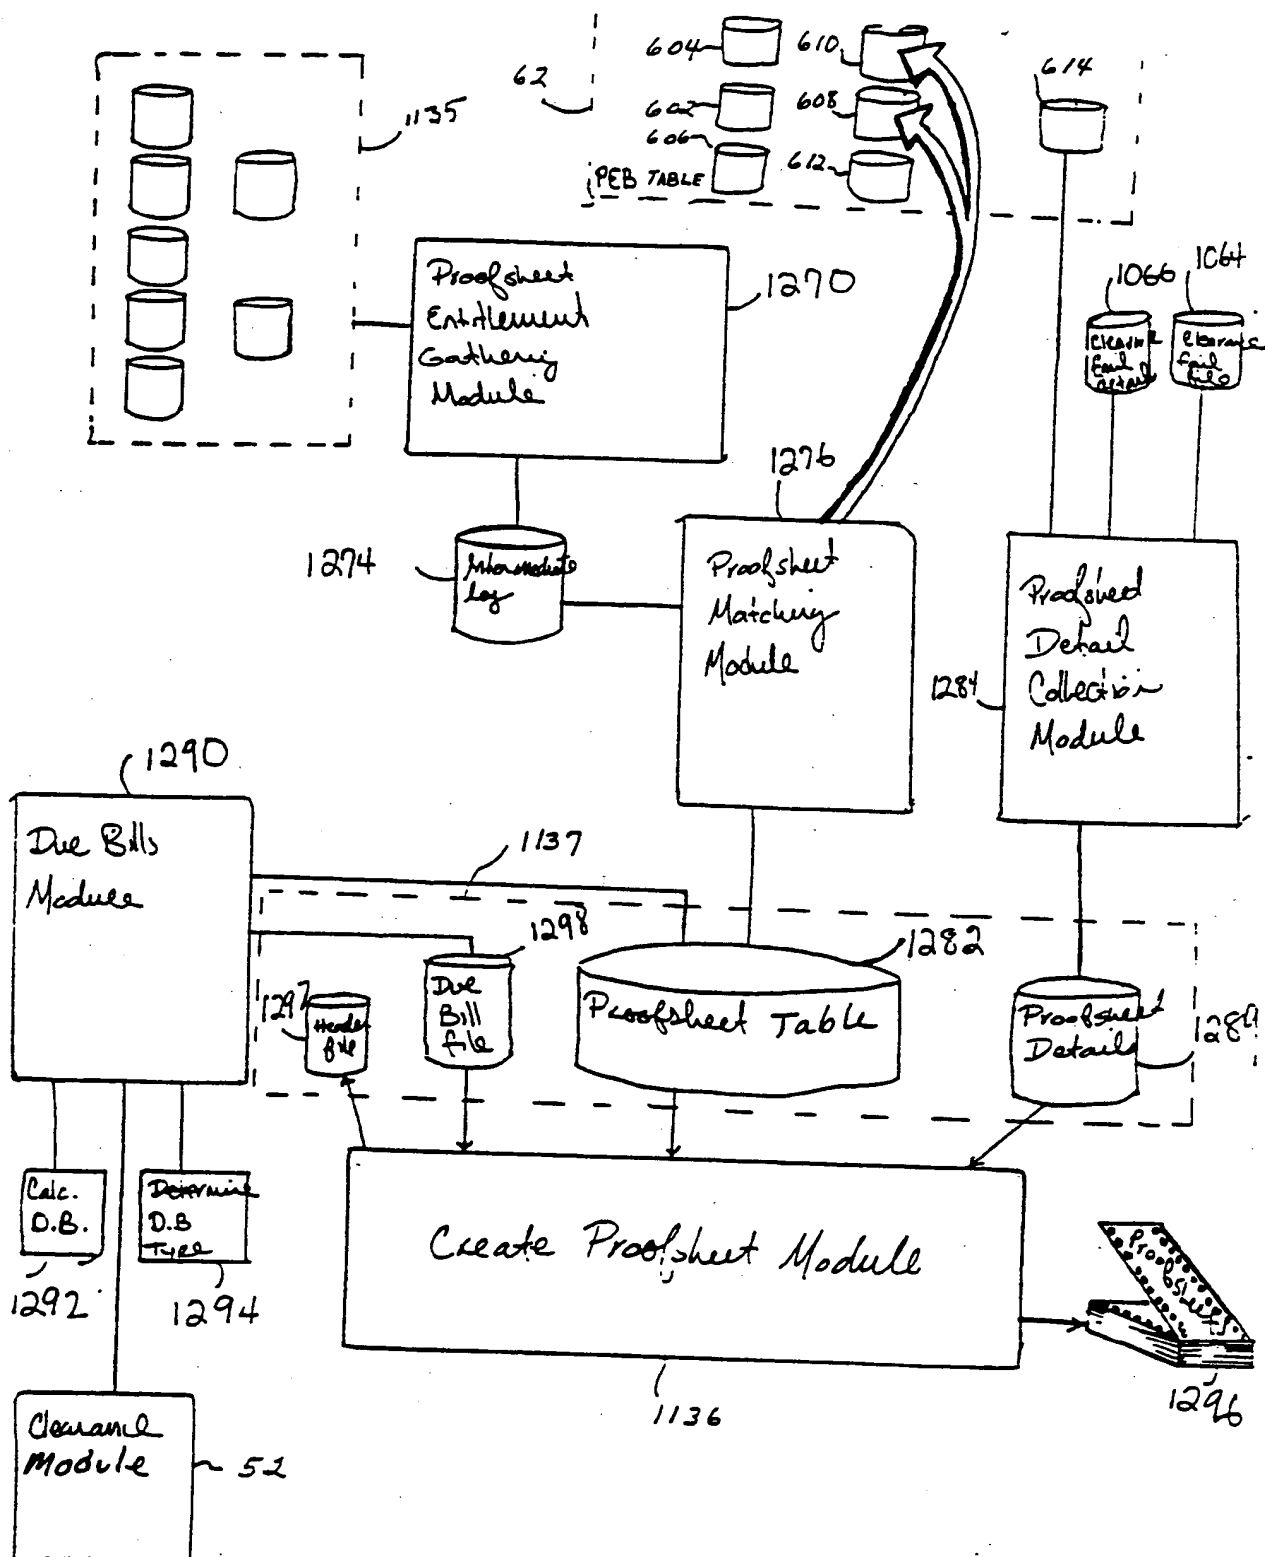 604
610
62
602
608
614
606
612
PEB TABLE
1135
Proofsheet
Entitlement
Gathering
Module
1270
1066
1064
Clearance
Fail
Detail
Clearance
fail
file
1276
1274
Intermediate
Log
Proofsheet
Matching
Module
1284
Proofsheet
Detail
Collection
Module
1290
Due Bills
Module
1137
1298
1282
1297
Header
file
Due
Bill
file
Proofsheet Table
Proofsheet
Details
Calc.
D.B.
Determine
D.B
Type
1292
1294
Create Proofsheet Module
Proofsheets
1296
1136
Clearance
Module
52